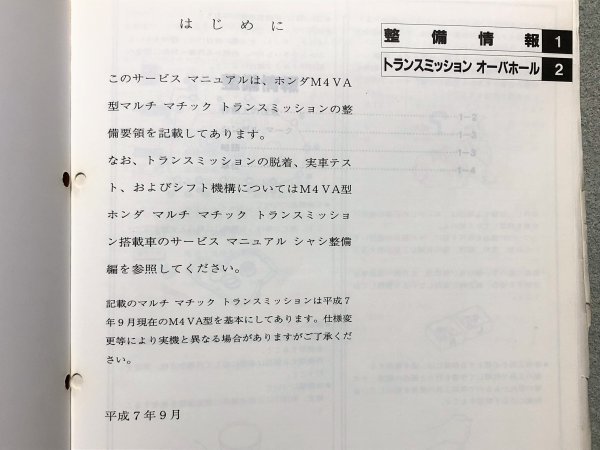 はじめに
整備情報 1
トランスミッション オーバホール 2
このサービス マニュアルは、ホンダM4VA
型マルチ マチック トランスミッションの整
備要領を記載してあります。
なお、トランスミッションの脱着、実車テス
ト、およびシフト機構についてはM4VA型
ホンダ マルチ マチック トランスミッショ
ン搭載車のサービス マニュアル シャシ整備
編を参照してください。
記載のマルチ マチック トランスミッションは平成7
年9月現在のM4VA型を基本にしてあります。仕様変
更等により実機と異なる場合がありますがご了承くだ
さい。
平成7年9月
1-2
1-3
1-3
1-4